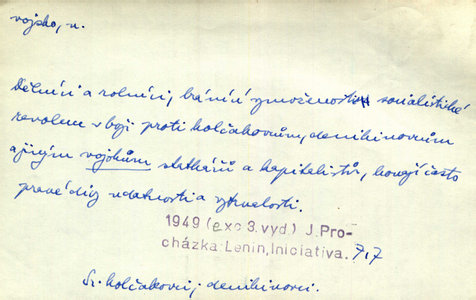 vojsko, n.
Dělníci a rolníci, bránící vymoženosti socialistické
revoluce v boji proti kolčakovcům, denikinovcům
a jiným vojskům statkářů a kapitalistů, konají často
pravé divy udatnosti a vytrvalosti.
1949 (exc 3.vyd) J.Pro-
cházka:Lenin,Iniciativa. 7,7
Sr. kolčakovci; denikinovci.